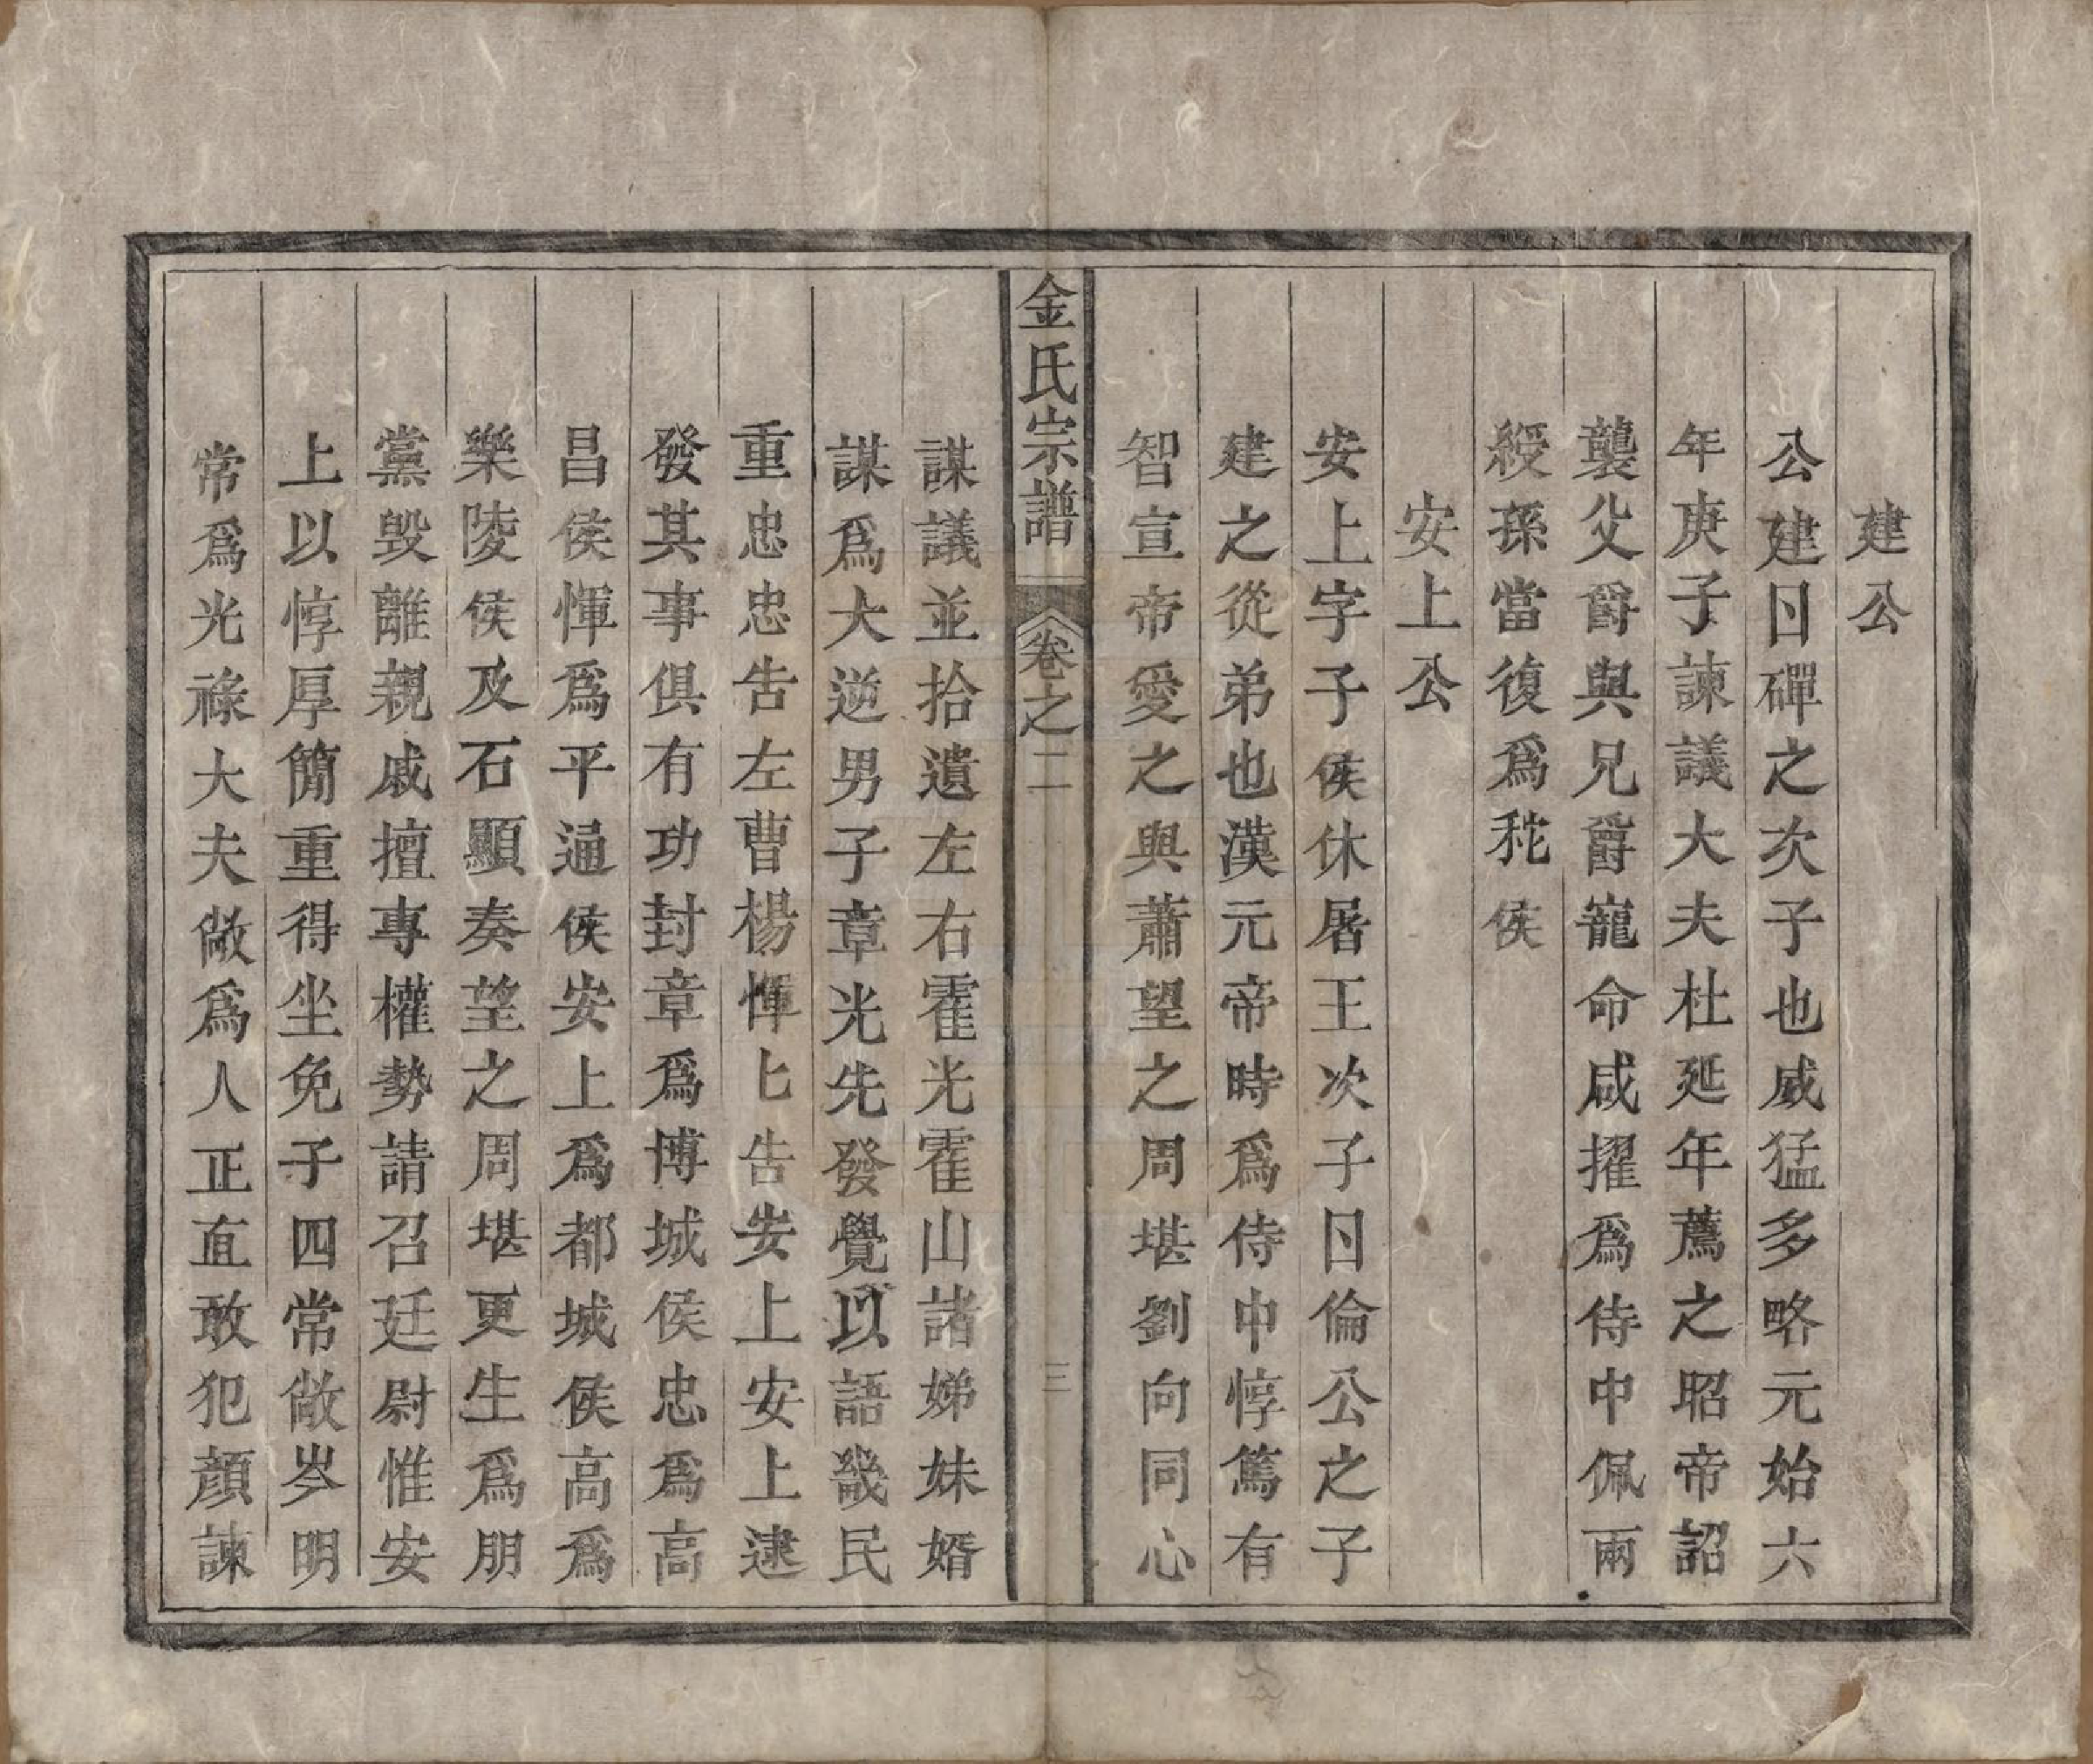 建公
公建日磾之次子也威猛多略元始六
年庚子諫議大夫杜延年薦之昭帝詔
襲父爵與兄爵寵命咸擢爲侍中佩兩
綬孫當復爲秺侯
安上公
安上字子侯休屠王次子日倫公之子
建之從弟也漢元帝時爲侍中惇篤有
智宣帝愛之與蕭望之周堪劉向同心
金氏宗譜 卷之二 三
謀議並拾遺左右霍光霍山諸娣妹婿
謀爲大逆男子章光先發覺以語畿民
重忠忠告左曹楊惲匕告安上安上逮
發其事俱有功封章爲博城侯忠爲高
昌侯惲爲平通侯安上爲都城侯高爲
樂陵侯及石顯奏望之周堪更生爲朋
黨毁離親戚擅專權勢請召廷尉惟安
上以惇厚簡重得坐免子四常敞岑明
常爲光祿大夫敞爲人正直敢犯顔諫